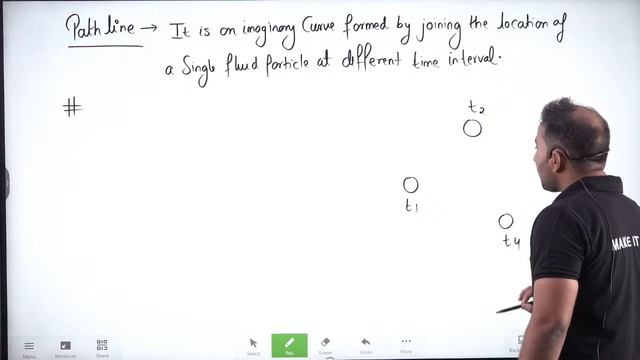 Path line → It is an imaginary Curve formed by joining the location of
a Single fluid Particle at different time interval.
#
t2
t1
t4
MAKE IT
Menu
Minimize
Share
Select
Pen
Eraser
Undo
More